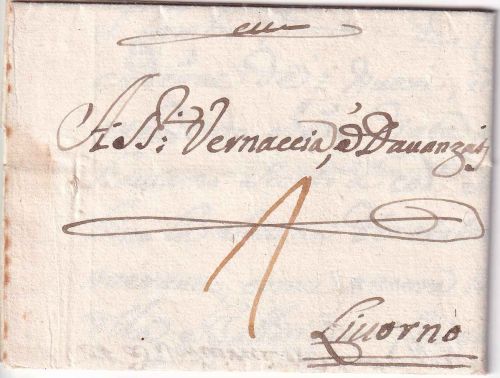 A SS.ri Vernaccia, e Davanzati
1
Livorno